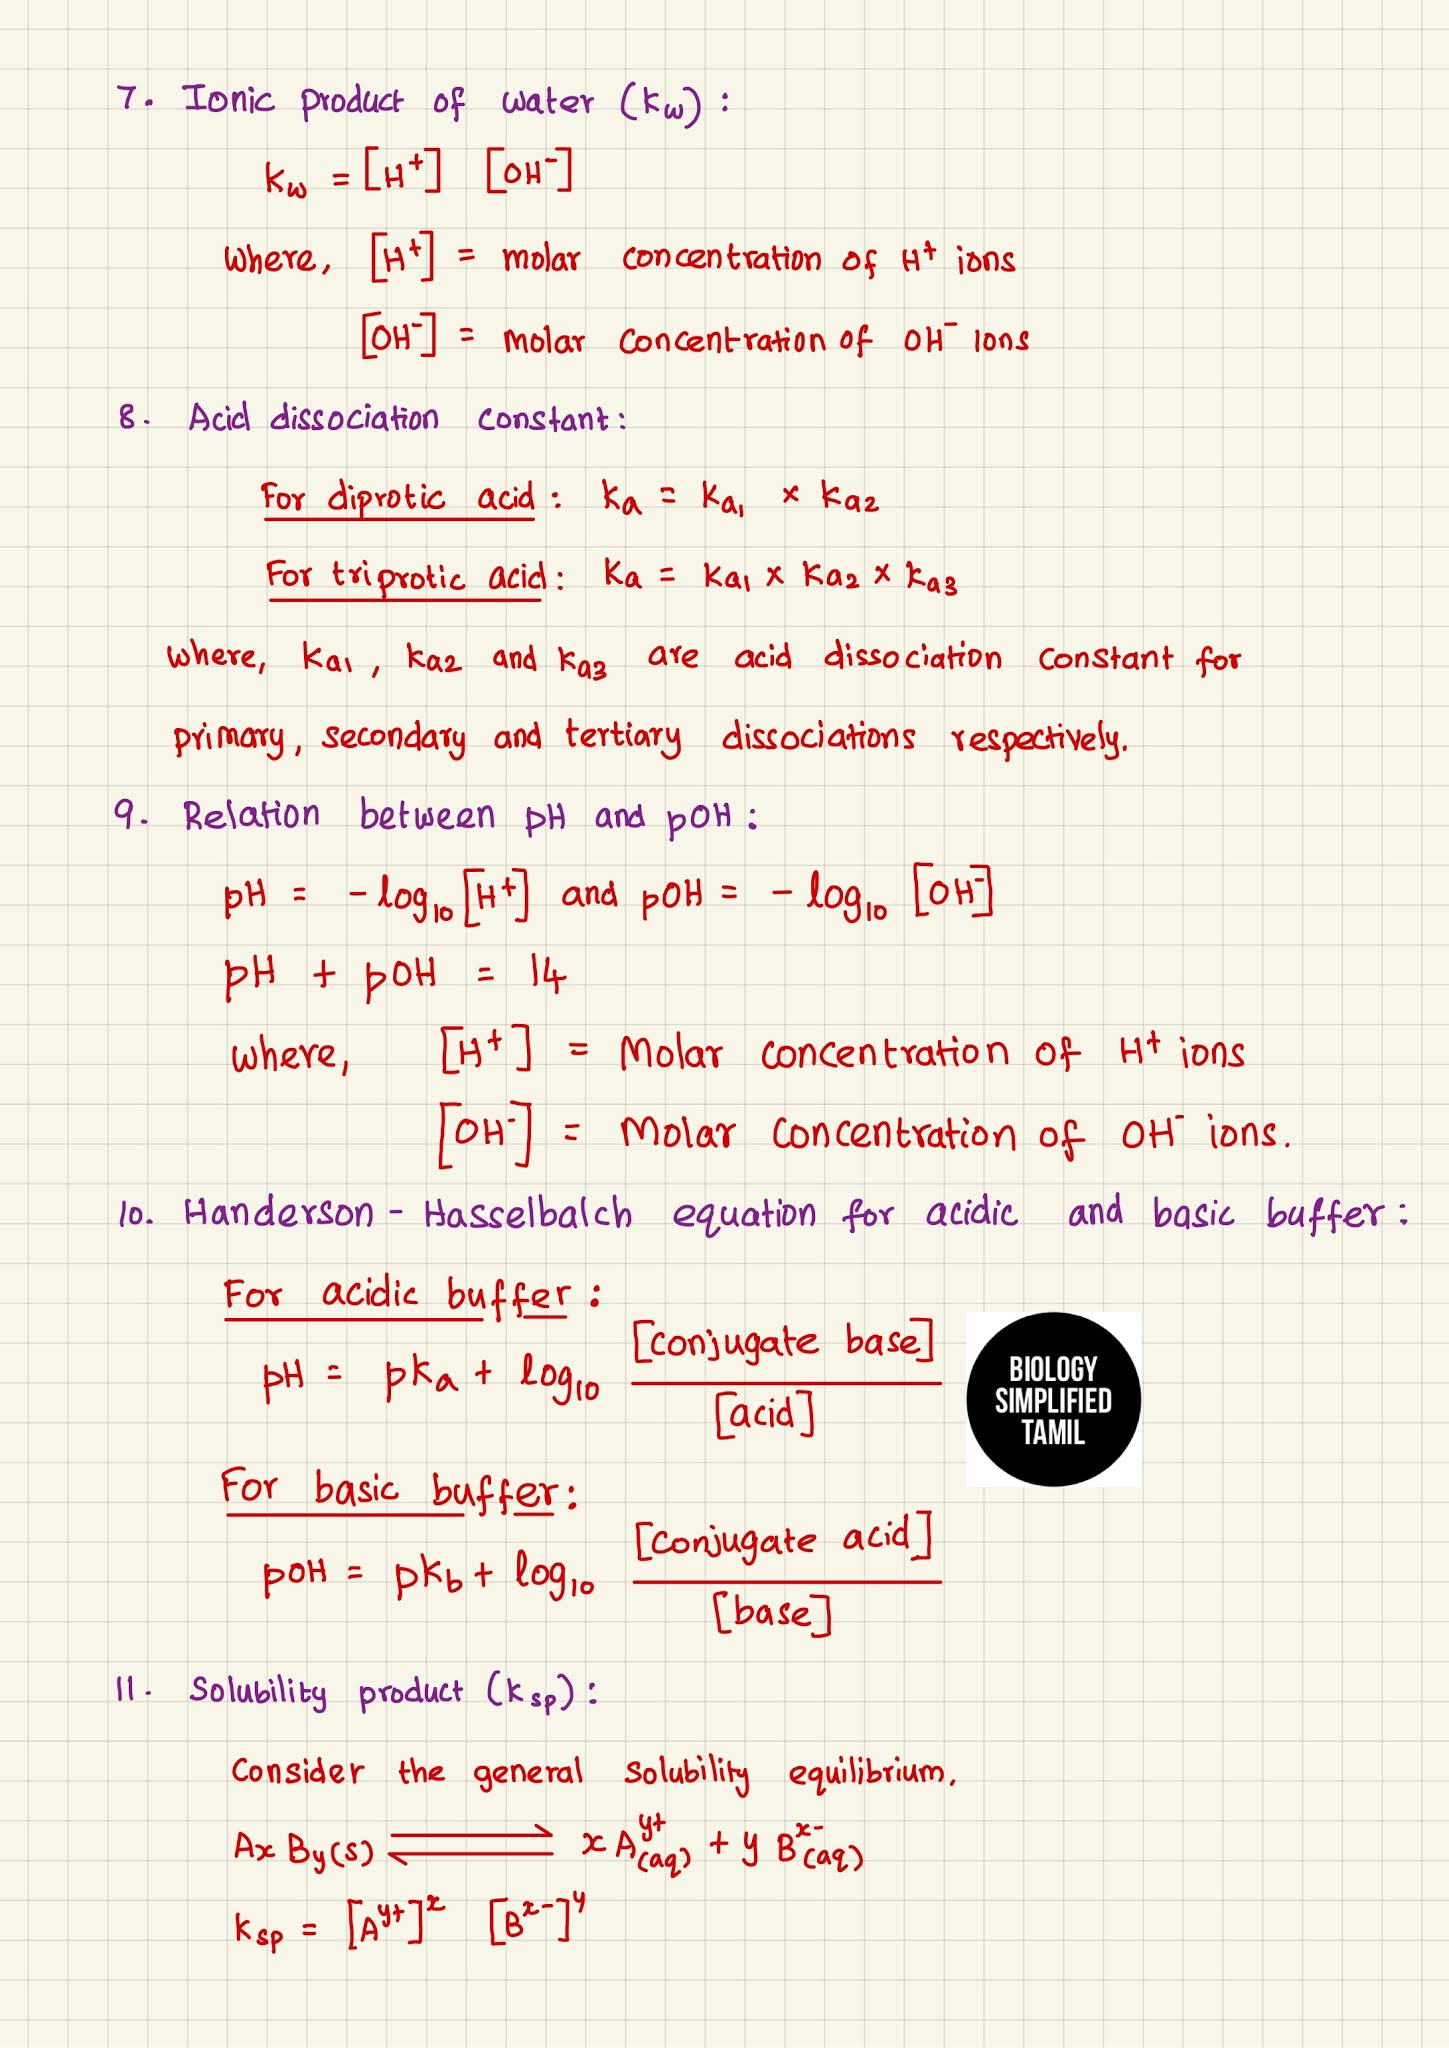 7. Ionic product of water (kw) :
kw = [H⁺] [OH⁻]
where, [H⁺] = molar concentration of H⁺ ions
[OH⁻] = molar concentration of OH⁻ ions
8. Acid dissociation constant:
For diprotic acid : ka = ka₁ × ka₂
For triprotic acid : ka = ka₁ × ka₂ × ka₃
where, ka₁, ka₂ and ka₃ are acid dissociation constant for
primary, secondary and tertiary dissociations respectively.
9. Relation between pH and pOH :
pH = -log₁₀ [H⁺] and pOH = -log₁₀ [OH⁻]
pH + pOH = 14
where, [H⁺] = Molar concentration of H⁺ ions
[OH⁻] = Molar concentration of OH⁻ ions.
10. Handerson - Hasselbalch equation for acidic and basic buffer :
For acidic buffer :
pH = pka + log₁₀ [conjugate base] / [acid]
BIOLOGY
SIMPLIFIED
TAMIL
For basic buffer :
pOH = pkb + log₁₀ [conjugate acid] / [base]
11. Solubility product (ksp) :
Consider the general solubility equilibrium,
Ax By(s) ⇌ x A^y+(aq) + y B^x-(aq)
ksp = [A^y+]^x [B^x-]^y